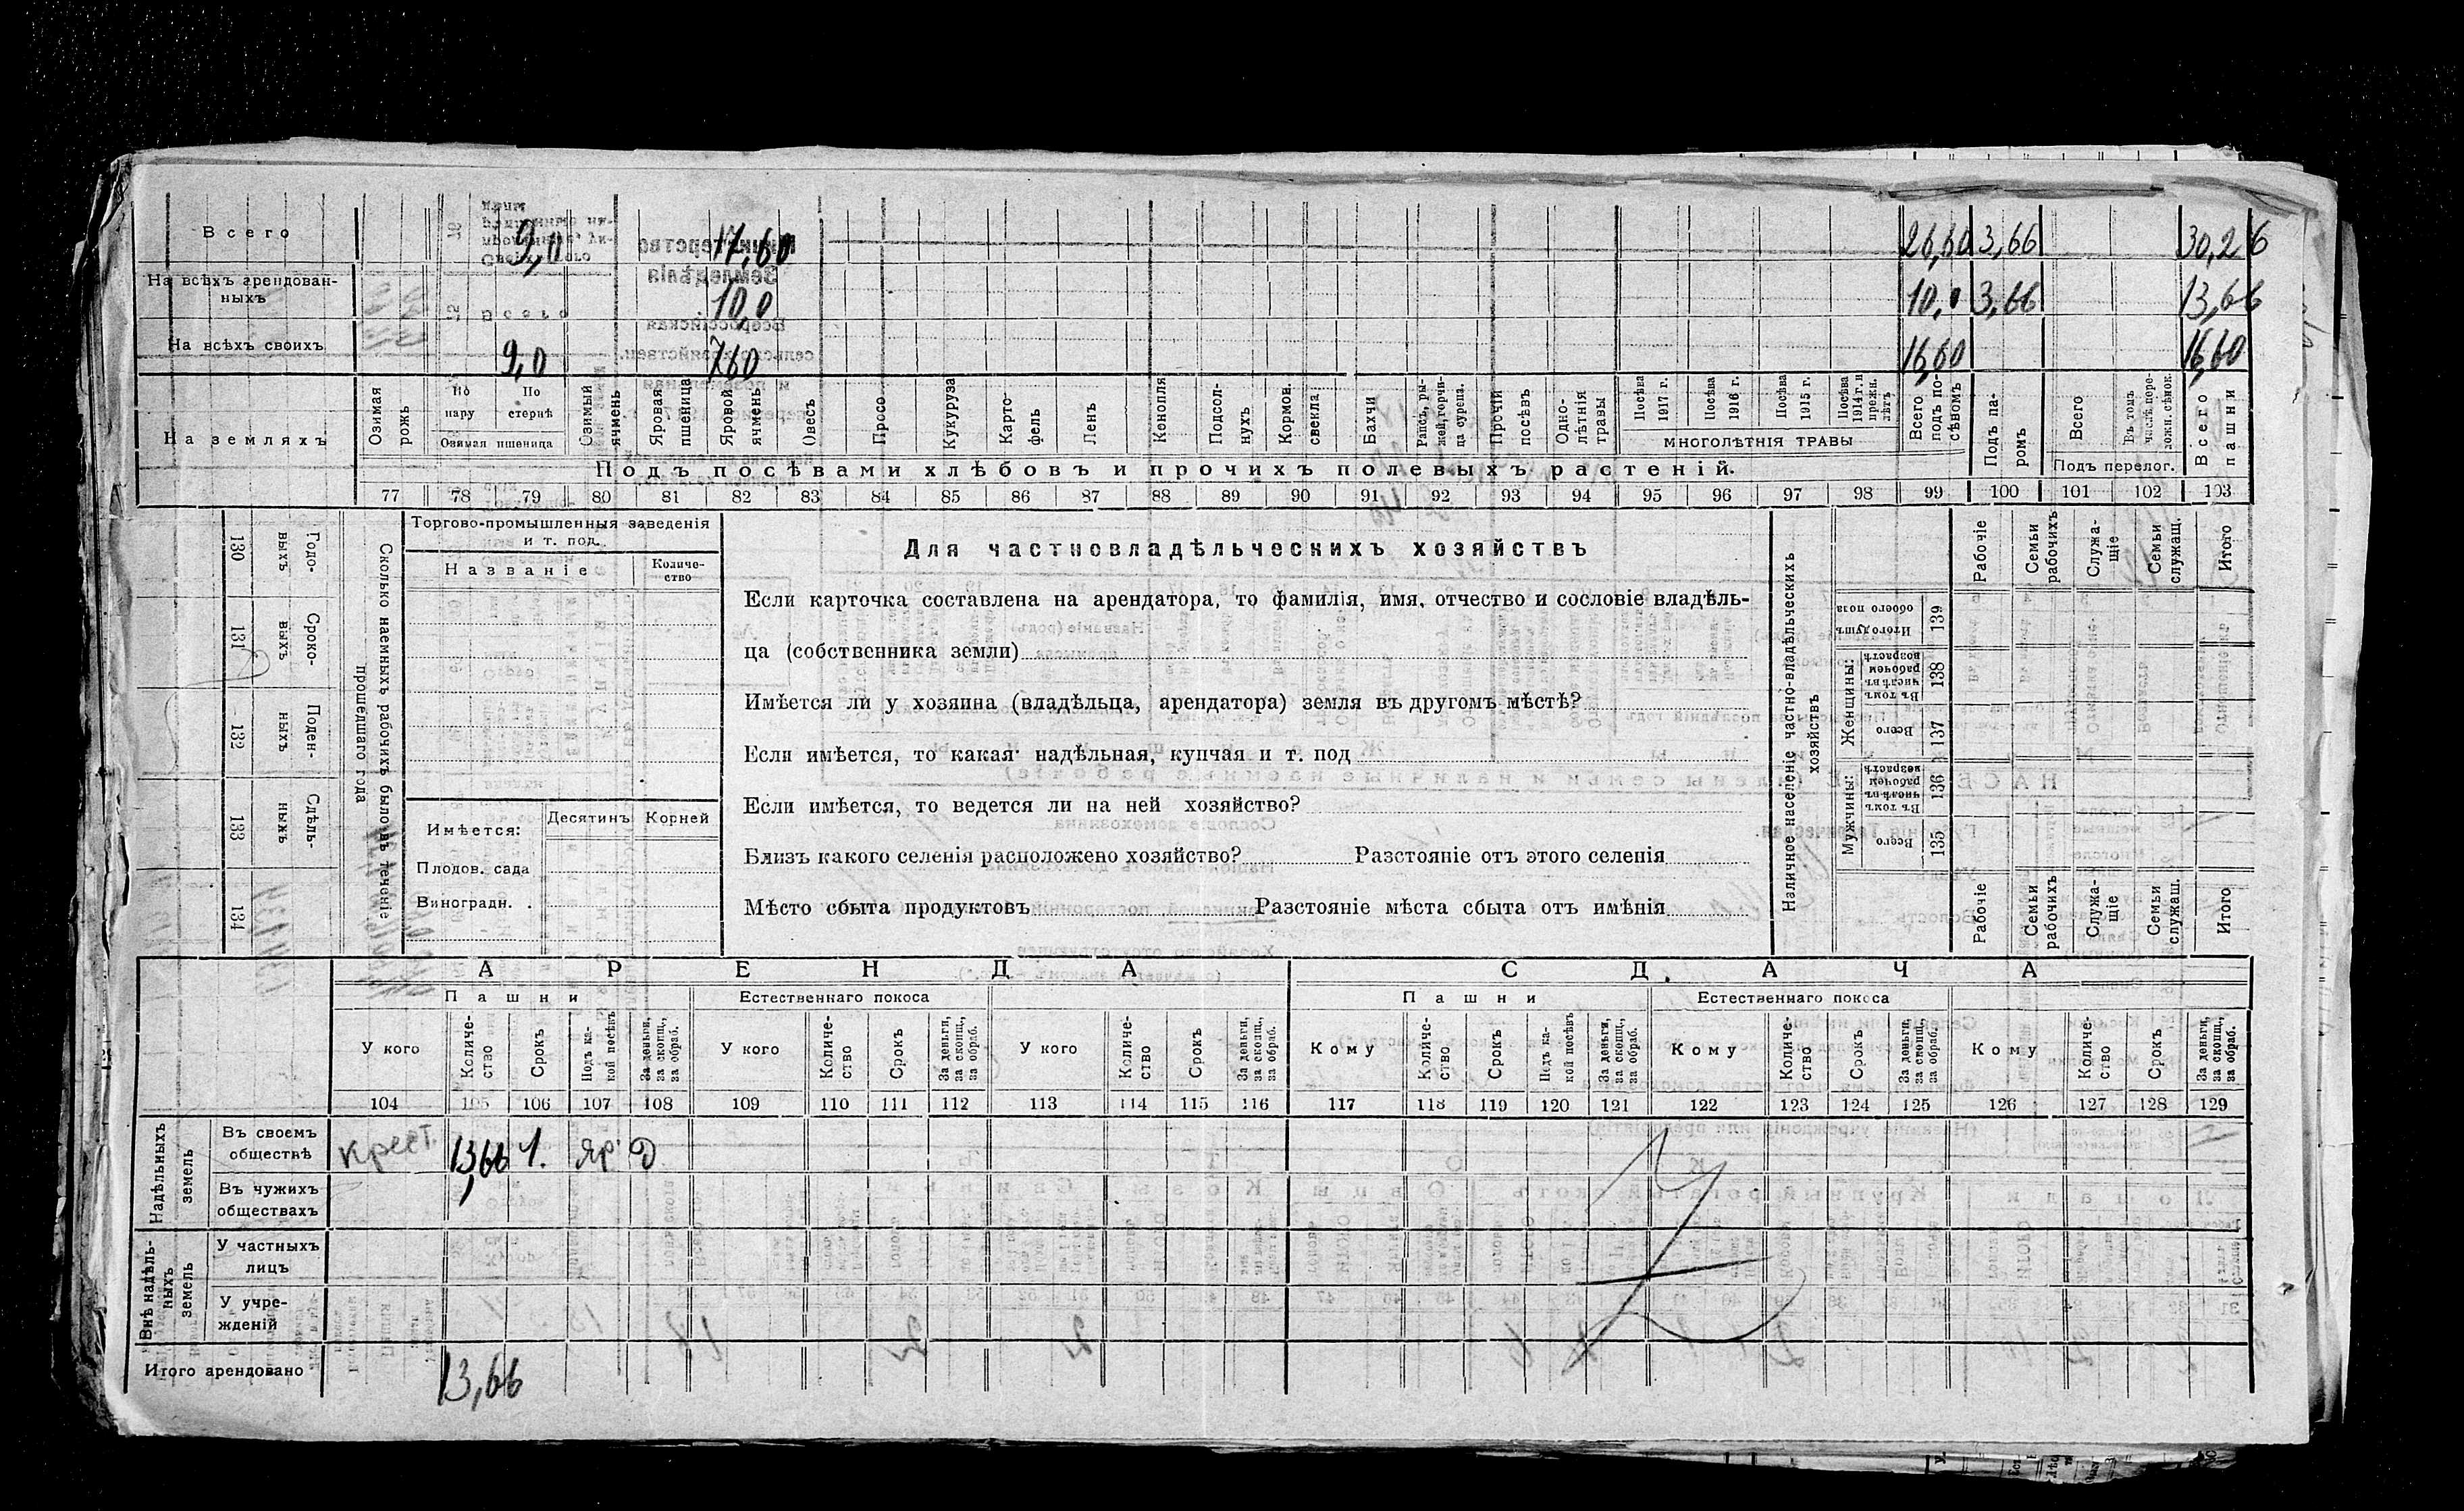 Всего 9,0 17,60 26,60 3,66 30,26
На всѣхъ арендован-
ныхъ 10,0 10,0 3,66 13,66
На всѣхъ своихъ 9,0 7,60 16,60 16,60
На земляхъ
Озимая рожь
По пару
По стернѣ
Озимая пшеница
Озимый ячмень
Яровая пшеница
Яровой ячмень
Овесъ
Просо
Кукуруза
Карто-
фель
Ленъ
Кенопля
Подсол-
нухъ
Кормов. свекла
Бахчи
Рапсъ, ры-
жей, горчи-
ца сурепа.
Прочій посѣвъ
Одно-
лѣтнія травы
Посѣва 1917 г.
Посѣва 1916 г.
Посѣва 1915 г.
Посѣва 1914 г. и прежн. лѣтъ
МНОГОЛѢТНІЯ ТРАВЫ
Всего подъ по-
сѣвомъ
Подъ па-
ромъ
Всего
Въ томъ числѣ пере-
ложн. сѣнок.
Подъ перелог.
Всего пашни
Подъ посѣвами хлѣбовъ и прочихъ полевыхъ растеній.
77 78 79 80 81 82 83 84 85 86 87 88 89 90 91 92 93 94 95 96 97 98 99 100 101 102 103
Сколько наемныхъ рабочихъ было въ теченіе
прошедшаго года
Годо-
выхъ
130
Сроко-
выхъ
131
Поден-
ныхъ
132
Сдѣль-
ныхъ
133
134
Торгово-промышленныя заведенія
и т. под.
Названіе
Количе-
ство
Имѣется:
Десятинъ
Корней
Плодов. сада
Виноградн.
Для частновладѣльческихъ хозяйствъ
Если карточка составлена на арендатора, то фамилія, имя, отчество и сословіе владѣль-
ца (собственника земли)
Имѣется ли у хозяина (владѣльца, арендатора) земля въ другомъ мѣстѣ?
Если имѣется, то какая: надѣльная, купчая и т. под
Если имѣется, то ведется ли на ней хозяйство?
Близъ какого селенія расположено хозяйство? Разстояніе отъ этого селенія
Мѣсто сбыта продуктовъ Разстояніе мѣста сбыта отъ имѣнія
Наличное населеніе частно-владѣльческихъ
хозяйствъ
Рабочіе
Семьи рабочихъ
Служа-
щіе
Семьи служащ.
Итого
Итого душъ обоего пола
139
Женщины:
Въ томъ числѣ въ рабочемъ возрастѣ
138
Всего
137
Мужчины:
Въ томъ числѣ въ рабочемъ возрастѣ
136
Всего
135
Рабочіе
Семьи рабочихъ
Служа-
щіе
Семьи служащ.
Итого
АРЕНДА
СДАЧА
Пашни
Естественнаго покоса
Пашни
Естественнаго покоса
У кого
Количе-
ство
Срокъ
Подъ ка-
кой посѣвъ
За деньги, за скопщ., за обраб.
У кого
Количе-
ство
Срокъ
За деньги, за скопщ., за обраб.
У кого
Количе-
ство
Срокъ
За деньги, за скопщ., за обраб.
Кому
Количе-
ство
Срокъ
Подъ ка-
кой посѣвъ
За деньги, за скопщ., за обраб.
Кому
Количе-
ство
Срокъ
За деньги, за скопщ., за обраб.
Кому
Количе-
ство
Срокъ
За деньги, за скопщ., за обраб.
104 105 106 107 108 109 110 111 112 113 114 115 116 117 118 119 120 121 122 123 124 125 126 127 128 129
Надѣльныхъ
земель
Въ своемъ
обществѣ
крест. 13,66 1. яр. Д
Въ чужихъ
обществахъ
Внѣ надѣль-
ныхъ
земель
У частныхъ
лицъ
У учре-
жденій
Итого арендовано 13,66